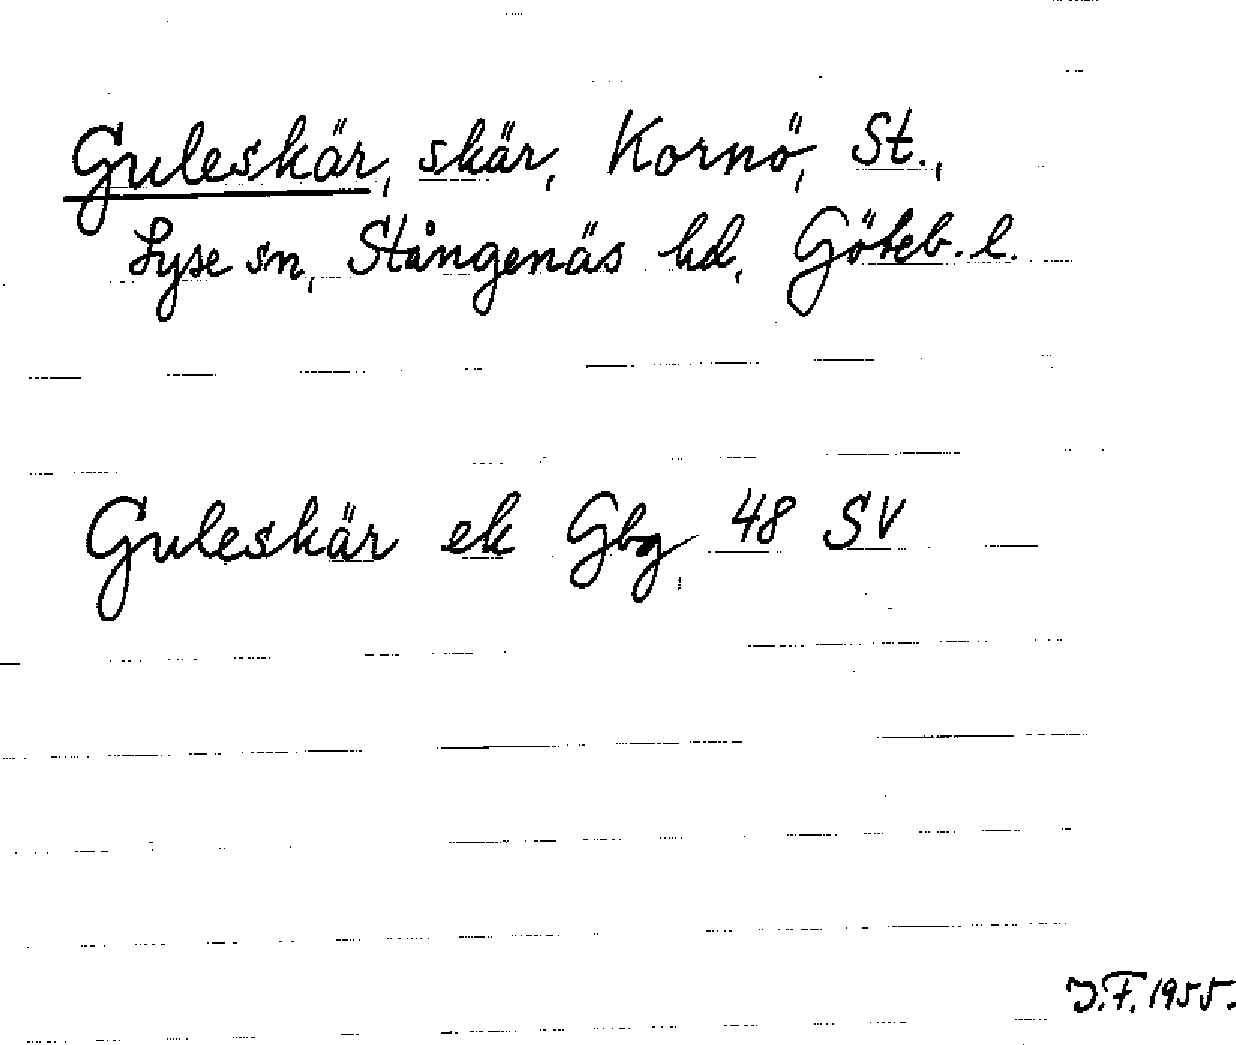 Guleskär, skär, Kornö, St.,
Lyse sn, Stångenäs hd, Göteb. l.
Guleskär ek Gbg 48 SV
J.F. 1955.